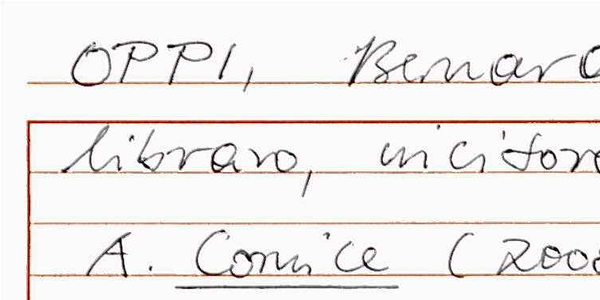 OPPI, Benard
libraro, incisore
A. Comice (2008